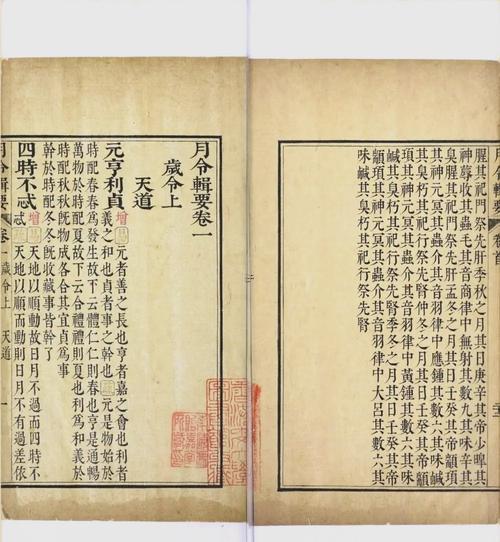 月令輯要 卷首
腥其祀門祭先肝季秋之月其日庚辛其帝少皥其
神蓐收其蟲毛其音商律中無射其數九其味辛其
臭腥其祀門祭先肝孟冬之月其日壬癸其帝顓頊
其神元冥其蟲介其音羽律中應鍾其數六其味鹹
其臭朽其祀行祭先腎仲冬之月其日壬癸其帝顓
頊其神元冥其蟲介其音羽律中黃鍾其數六其味
鹹其臭朽其祀行祭先腎季冬之月其日壬癸其帝
顓頊其神元冥其蟲介其音羽律中大呂其數六其
味鹹其臭朽其祀行祭先腎
月令輯要卷一
歲令上
天道
元亨利貞 增 元者善之長也亨者嘉之會也利者
義之和也貞者事之幹也 元是物始於
時配春春爲發生故下云體仁仁則春也亨是通暢
萬物於時配夏故下云合禮禮則夏也利爲和義於
時配秋秋旣物成各合其宜貞爲事
幹於時配冬冬旣收藏事皆幹了
四時不忒 增 天地以順動故日月不過而四時不
忒 天地以順而動則日月不有過差依
月令輯要 卷一 歲令上 天道 一